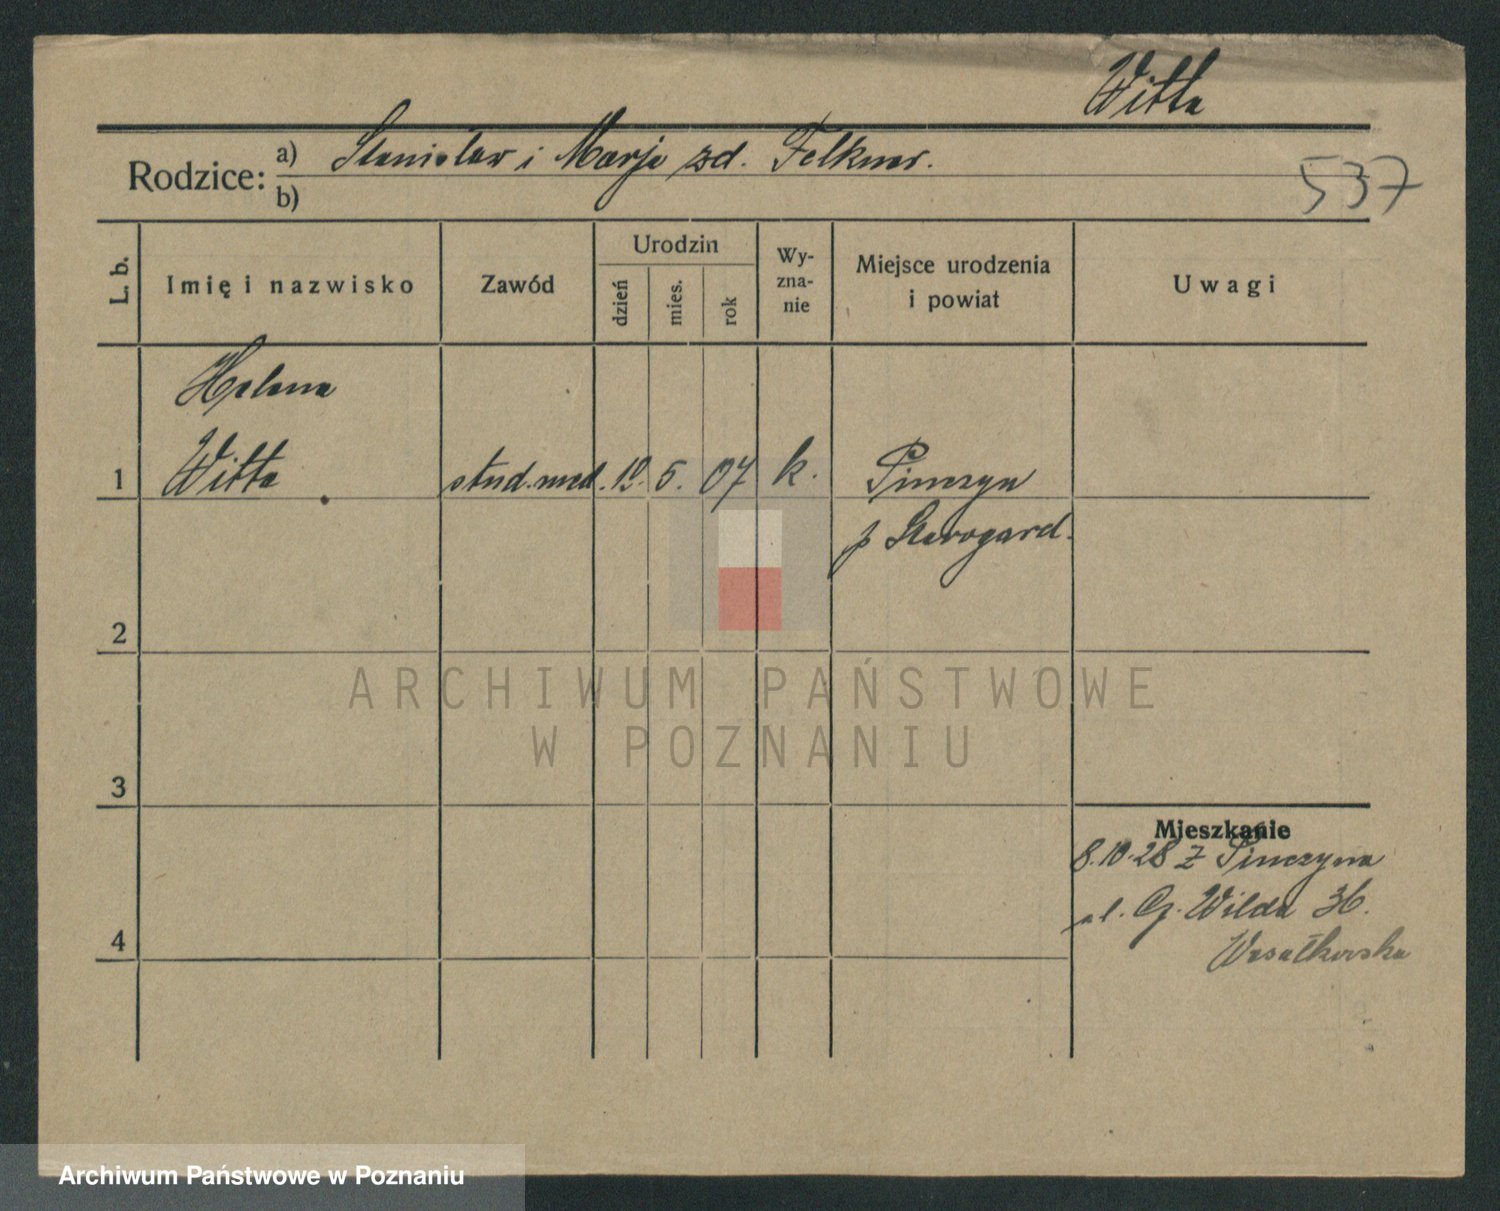 Witta
Rodzice: a) Stanisław i Marja zd. Felkner.
b)
537
L. b.
Imię i nazwisko
Zawód
Urodzin
dzień
mies.
rok
Wy-
zna-
nie
Miejsce urodzenia
i powiat
Uwagi
Helena
1 Witta stud. med. 12. 5. 07 k. Pinczyn
p Starogard.
2
3
Mieszkanie
8.10.28 z Pinczyna
ul. G. Wilda 36.
4
ARCHIWUM PAŃSTWOWE
W POZNANIU
Archiwum Państwowe w Poznaniu